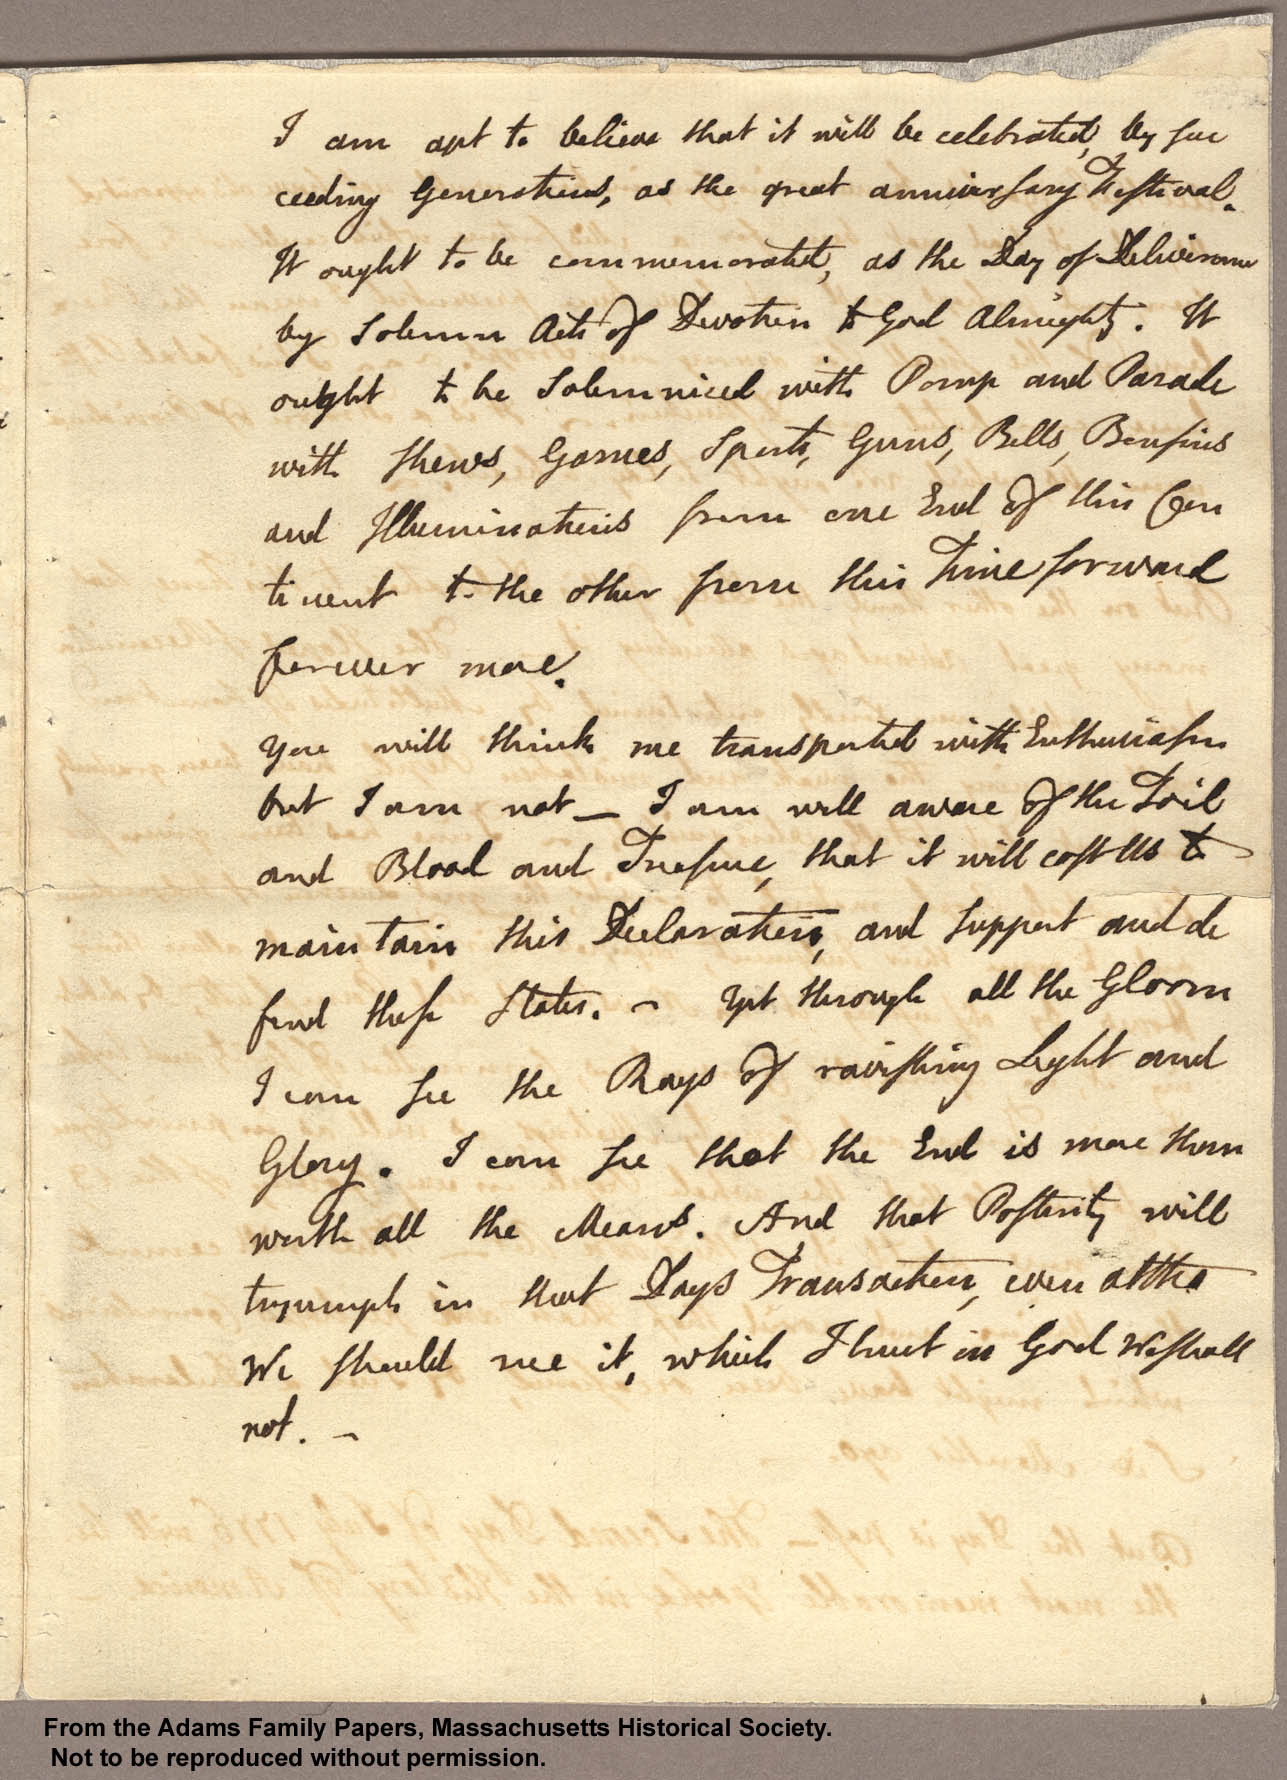 I am apt to believe that it will be celebrated, by suc
ceeding Generations, as the great anniversary Festival.
It ought to be commemorated, as the Day of Deliverance
by solemn Acts of Devotion to God Almighty. It
ought to be solemnized with Pomp and Parade
with Shews, Games, Sports, Guns, Bells, Bonfires
and Illuminations from one End of this Con
tinent to the other from this Time forward
forever more.
You will think me transported with Enthusiasm
but I am not — I am well aware of the Toil
and Blood and Treasure, that it will cost Us to
maintain this Declaration, and support and de
fend these States. — Yet through all the Gloom
I can see the Rays of ravishing Light and
Glory. I can see that the End is more than
worth all the Means. And that Posterity will
tryumph in that Days Transaction, even altho
We should rue it, which I trust in God We shall
not. —
But the Day is past — The Second Day of July 1776 will be
the most memorable Epocha, in the History of America
From the Adams Family Papers, Massachusetts Historical Society.
Not to be reproduced without permission.